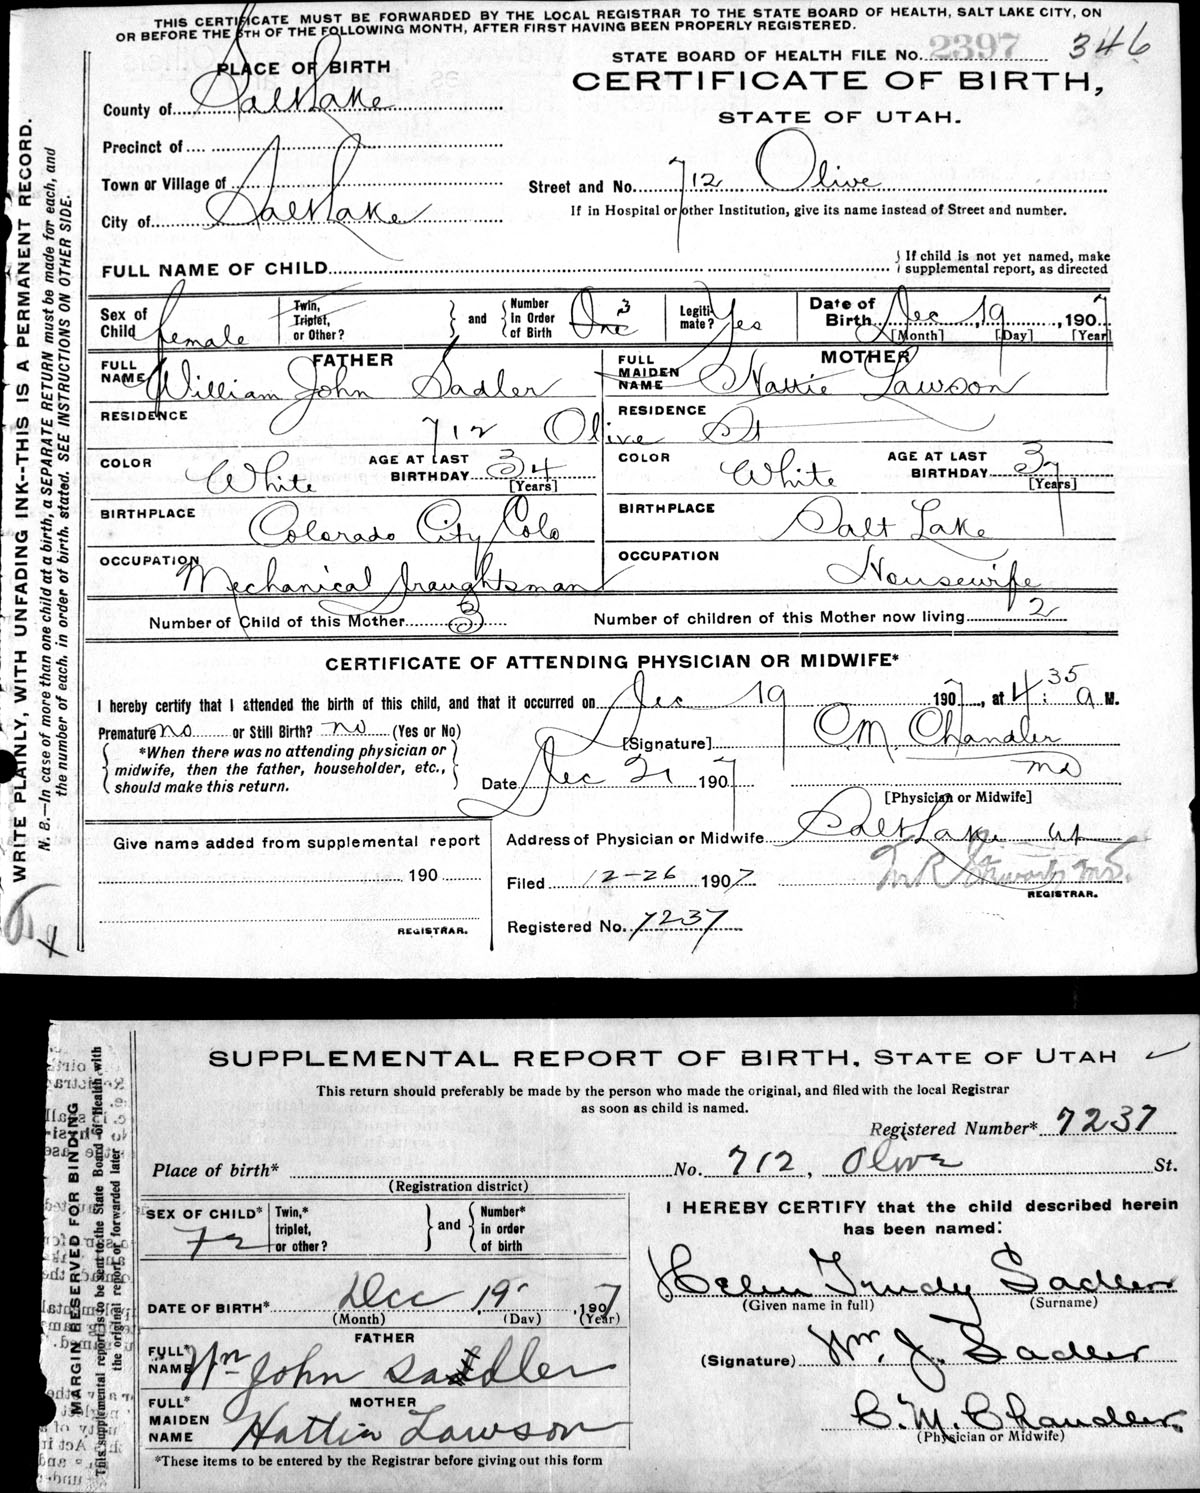 THIS CERTIFICATE MUST BE FORWARDED BY THE LOCAL REGISTRAR TO THE STATE BOARD OF HEALTH, SALT LAKE CITY, ON
OR BEFORE THE 5TH OF THE FOLLOWING MONTH, AFTER FIRST HAVING BEEN PROPERLY REGISTERED.
STATE BOARD OF HEALTH FILE No. 2397 346
PLACE OF BIRTH
CERTIFICATE OF BIRTH,
STATE OF UTAH.
County of Salt Lake
Precinct of
Town or Village of
Street and No. 712 Olive
City of Salt Lake
If in Hospital or other Institution, give its name instead of Street and number.
FULL NAME OF CHILD
If child is not yet named, make
supplemental report, as directed
Sex of Child female
Twin, Triplet, or Other?
and
Number In Order of Birth One 3
Legitimate? Yes
Date of Birth Dec 19, 1907
[Month] [Day] [Year]
FATHER
FULL NAME William John Sadler
MOTHER
FULL MAIDEN NAME Hattie Lawson
RESIDENCE 712 Olive St
RESIDENCE
COLOR White
AGE AT LAST BIRTHDAY 34 [Years]
COLOR White
AGE AT LAST BIRTHDAY 37 [Years]
BIRTHPLACE Colorado City Colo
BIRTHPLACE Salt Lake
OCCUPATION Mechanical draughtsman
OCCUPATION Housewife
Number of Child of this Mother 3
Number of children of this Mother now living 2
CERTIFICATE OF ATTENDING PHYSICIAN OR MIDWIFE*
I hereby certify that I attended the birth of this child, and that it occurred on Dec 19 1907, at 4:35 a M.
Premature no or Still Birth? no (Yes or No)
*When there was no attending physician or
midwife, then the father, householder, etc.,
should make this return.
[Signature] C.M. Chandler
MD
Date Dec 21 1907
[Physician or Midwife]
Give name added from supplemental report
190
REGISTRAR.
Address of Physician or Midwife Salt Lake ut
Filed 12-26 1907
REGISTRAR.
Registered No. 7237
WRITE PLAINLY, WITH UNFADING INK--THIS IS A PERMANENT RECORD.
N. B.—In case of more than one child at a birth, a SEPARATE RETURN must be made for each, and
the number of each, in order of birth, stated. SEE INSTRUCTIONS ON OTHER SIDE.
SUPPLEMENTAL REPORT OF BIRTH, STATE OF UTAH
This return should preferably be made by the person who made the original, and filed with the local Registrar
as soon as child is named.
Registered Number* 7237
Place of birth* No. 712, Olive St.
(Registration district)
SEX OF CHILD*
Twin,* triplet, or other?
and
Number* in order of birth
I HEREBY CERTIFY that the child described herein
has been named:
Helen Trudy Sadler
(Given name in full) (Surname)
DATE OF BIRTH* Dec 19 1907
(Month) (Day) (Year)
FATHER
FULL* NAME Wm John Sadler
(Signature) Wm. J. Sadler
MOTHER
FULL* MAIDEN NAME Hattie Lawson
C. M. Chandler
(Physician or Midwife)
*These items to be entered by the Registrar before giving out this form
MARGIN RESERVED FOR BINDING
This supplemental report is to be sent to the State Board of Health with
the original report or forwarded later